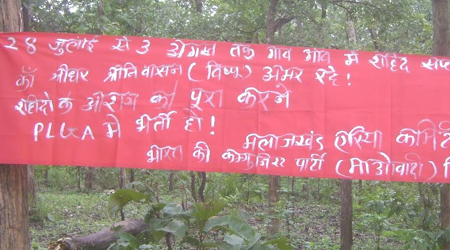 28 जुलाई से 3 अगस्त तक गांव गांव मे शहिद सप्
कॉ श्रीधर श्रीनिवासन (विष्णु) अमर रहे!
शहीदो के को पुरा करने
PLGA मे भर्ती हो!
मलाजखंड एरिया कमिटी
भारत की कम्युनिस्ट पार्टी (माओवादी)